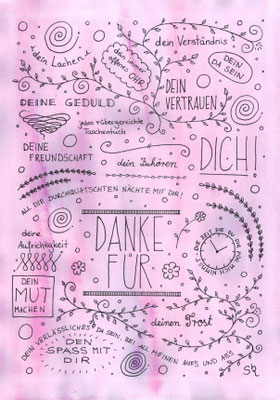 dein Lachen
dein immer
offenes Ohr
dein Verständnis
DEIN
DA SEIN
DEINE GEDULD
DEIN
VERTRAUEN
jedes rübergereichte
Taschentuch
DEINE
FREUNDSCHAFT
dein Zuhören
DICH!
ALL DIE DURCHQUATSCHTEN NÄCHTE MIT DIR!
deine
Aufrichtigkeit
DANKE
FÜR
DIE ZEIT DIE DU DIR
FÜR MICH NIMMST
DEIN
MUT
MACHEN
deinen Trost
DEIN VERLÄSSLICHES DA SEIN BEI ALL MEINEN AUFS UND ABS
DEN
SPASS MIT
DIR
SR